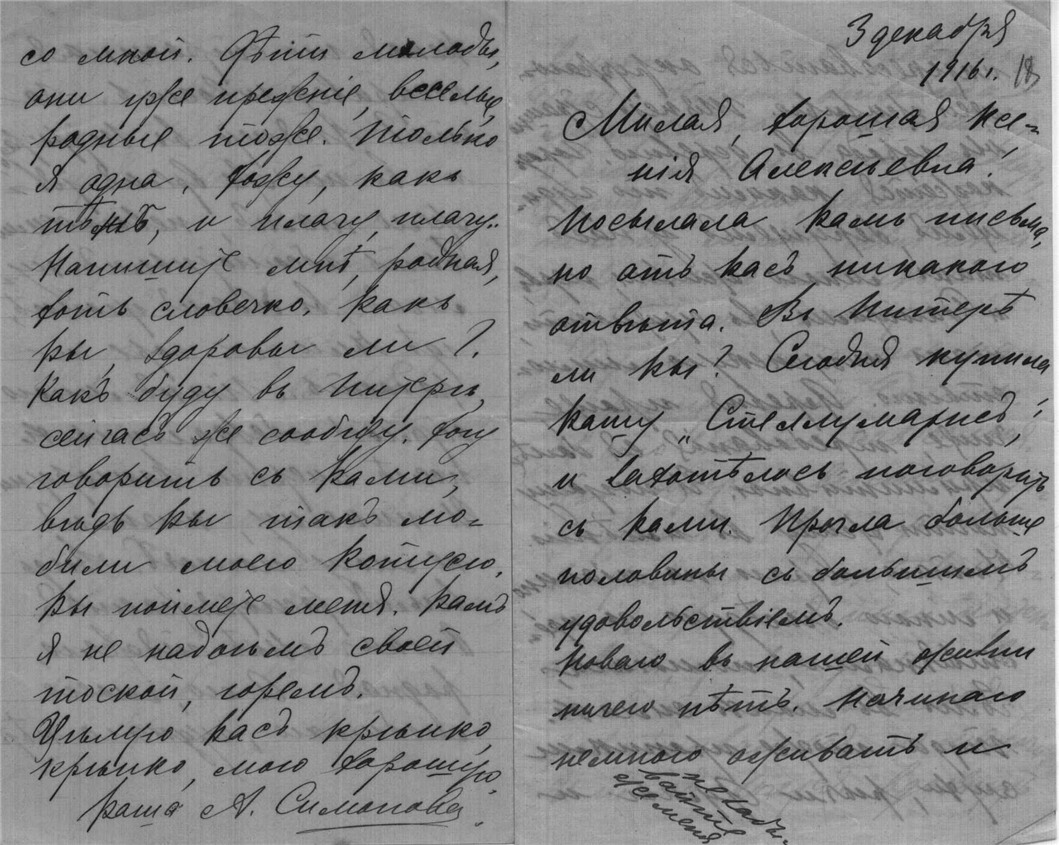 3 декабря
1916 г.
18
Милая, хорошая Ксе-
нія Алексѣевна!
Посылала Вамъ письма,
но отъ Васъ никакого
отвѣта. Въ Питерѣ
ли Вы? Сегодня купила
Вашу „Стеллу Марисъ",
и захотѣлось поговорить
съ Вами. Прочла больше
половины съ большимъ
удовольствіемъ.
Новаго въ нашей жизни
ничего нѣтъ. Начинаю
немного оживать и
не забы-
вайте
меня
со мной. Дѣти молоды,
они уже прежніе, веселые,
родные тоже. Только
я одна, хожу, какъ
тѣнь, и плачу, плачу..
Напишите мнѣ, родная,
хоть словечко. Какъ
Вы, здоровы ли?
Какъ буду въ Питерѣ,
сейчасъ же сообщу. Хочу
говорить съ Вами,
вѣдь Вы такъ лю-
били мою Котусю,
Вы поймете меня. Вамъ
я не надоѣмъ своей
тоской, горемъ.
Цѣлую Васъ крѣпко,
крѣпко, мою хорошую.
Ваша А. Симонова.